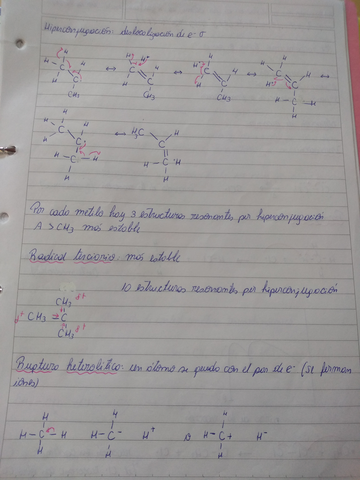 Hiperconjugación: deslocalización de e⁻ σ
H H H H H H H H
H-C H C=C H C=C H C=C ↔
CH₃ CH₃ CH₃ H-C-H
H
H-C H ↔ H₃C H
C C
H-C-H C-H
H H
Por cada metilo hay 3 estructuras resonantes por hiperconjugación
A > CH₃ más estable
Radical terciario: más estable
10 estructuras resonantes por hiperconjugación
CH₃
CH₃ C
CH₃
Ruptura heterolítica: un átomo se queda con el par de e⁻ (se forman
iones)
H H H
H-C-H H-C⁻ H⁺ H-C+ H⁻
H H H